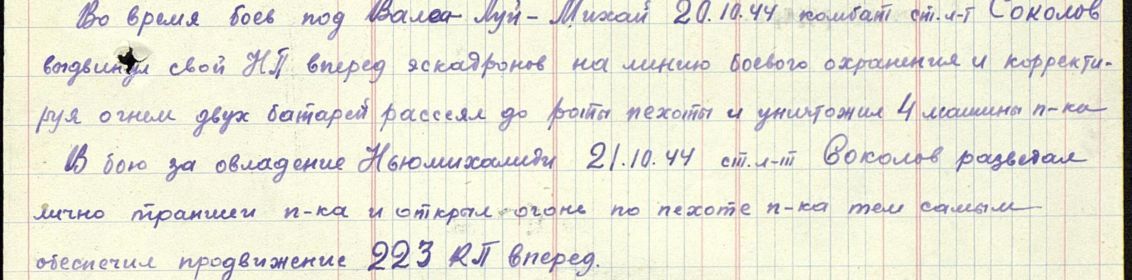 Во время боев под Валеа-Луй-Михай 20.10.44 комбат ст.л-т Соколов
выдвинул свой НП вперед эскадронов на линию боевого охранения и корректи-
руя огнем двух батарей рассеял до роты пехоты и уничтожил 4 машины п-ка
В бою за овладение Ньюмихалиди 21.10.44 ст.л-т Соколов разведал
лично траншеи п-ка и открыл огонь по пехоте п-ка тем самым
обеспечил продвижение 223 КП вперед.